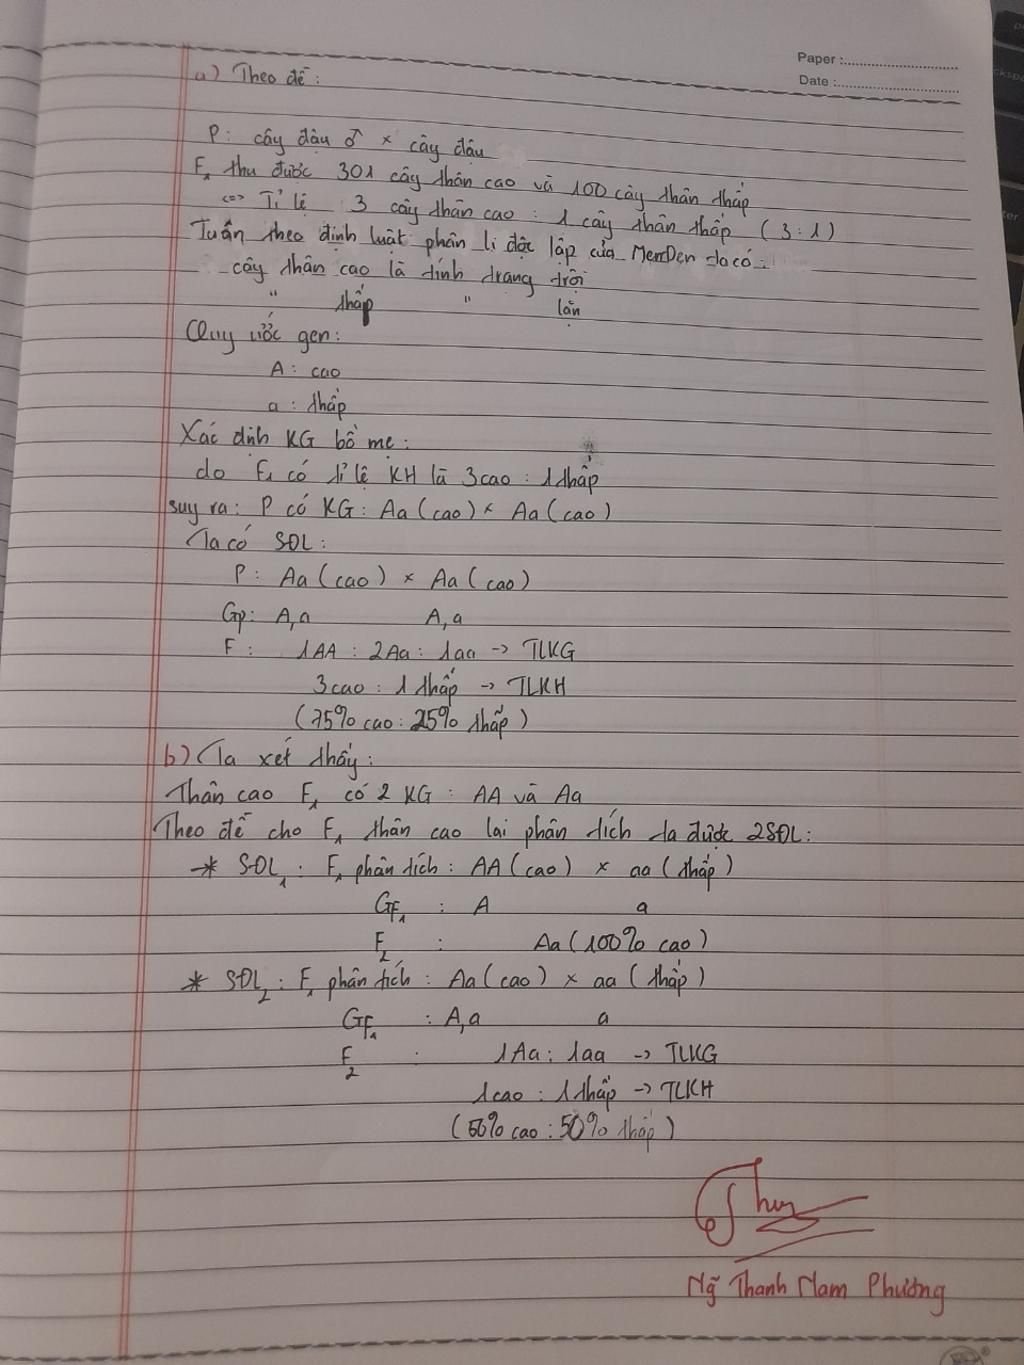 Paper :
Date :
a) Theo đề :
P : cây đậu ♂ × cây đậu
F₁ thu được 301 cây thân cao và 100 cây thân thấp
<=> Tỉ lệ 3 cây thân cao : 1 cây thân thấp (3 : 1)
Tuân theo định luật phân li độc lập của MenDen ta có :
cây thân cao là tính trạng trội
" thấp " lặn
Quy ước gen :
A : cao
a : thấp
Xác định KG bố mẹ :
do F₁ có tỉ lệ KH là 3 cao : 1 thấp
suy ra : P có KG : Aa (cao) × Aa (cao)
Ta có SĐL :
P : Aa (cao) × Aa (cao)
Gp : A,a A,a
F : 1AA : 2Aa : 1aa -> TLKG
3 cao : 1 thấp -> TLKH
(75% cao : 25% thấp)
b) Ta xét thấy :
Thân cao F₁ có 2 KG : AA và Aa
Theo đề cho F₁ thân cao lai phân tích ta được 2SĐL :
-* SĐL₁ : F₁ phân tích : AA (cao) × aa (thấp)
GF₁ : A a
F₂ : Aa (100% cao)
* SĐL₂ : F₁ phân tích : Aa (cao) × aa (thấp)
GF₁ : A,a a
F₂ : 1Aa : 1aa -> TLKG
1 cao : 1 thấp -> TLKH
(50% cao : 50% thấp)
Thanh Nam Phương